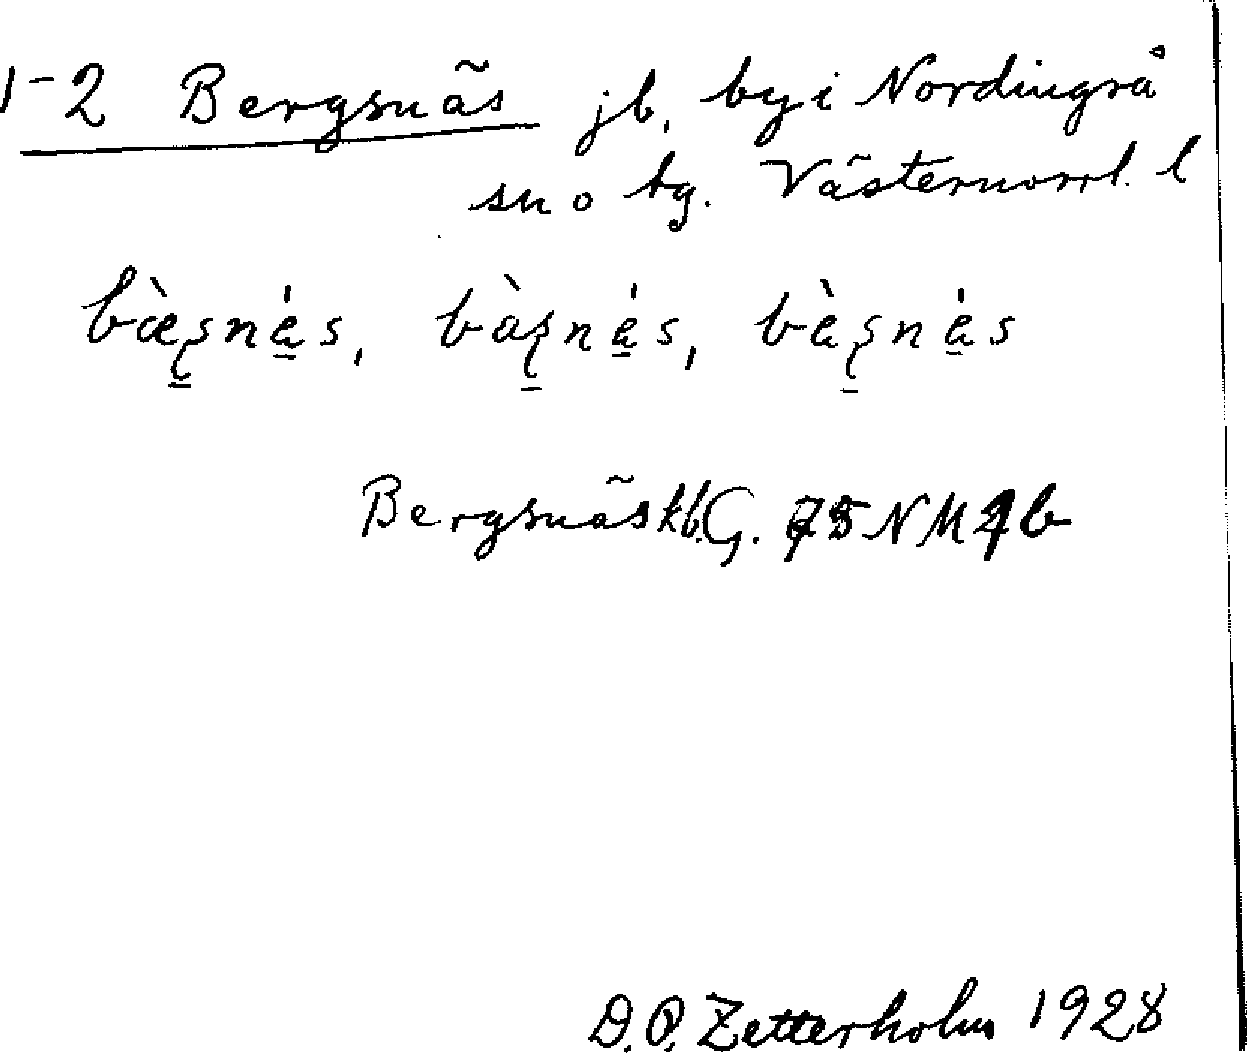 1-2 Bergsnäs jb, by i Nordingrå
sn o tg. Västernorrl. l
bæ̀s̠nás, bàs̠nás, bàs̠nás
Bergsnäs kb. G. NM b
D.O. Zetterholm 1928